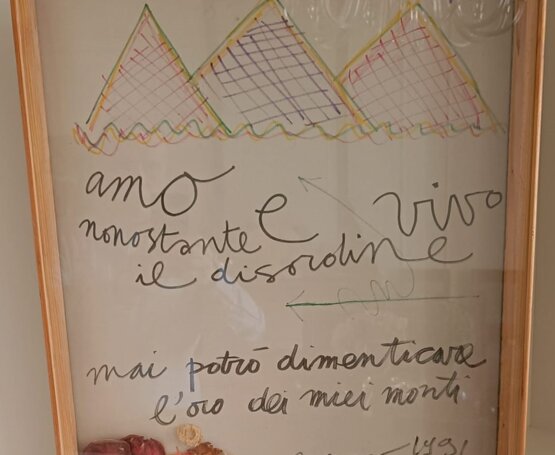 amo e vivo
nonostante
il disordine
mai potrò dimenticare
l'oro dei miei monti
1991